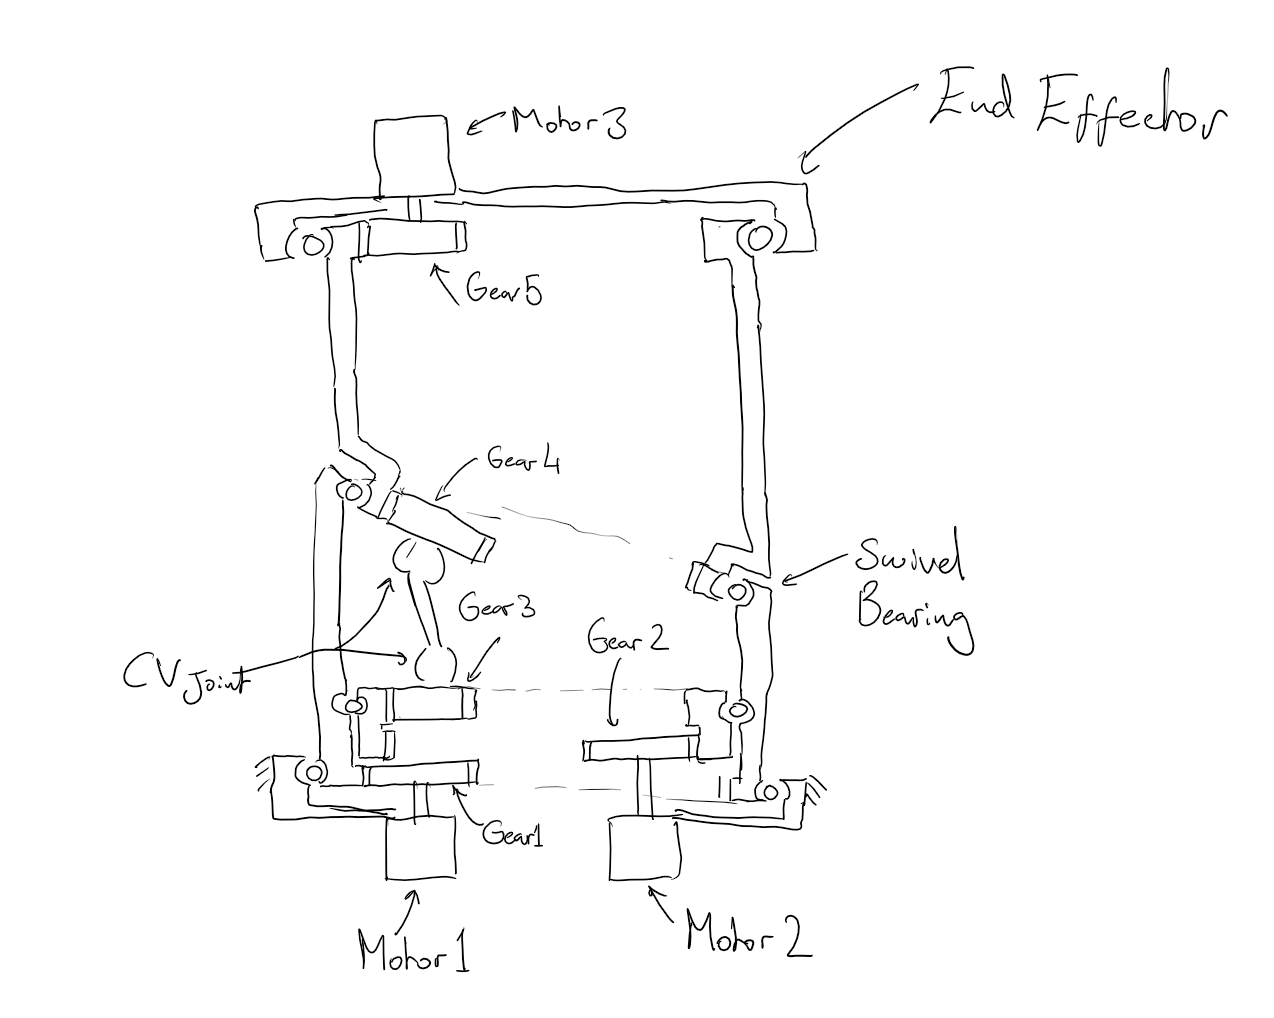 End Effector
Motor 3
Gear 5
Gear 4
Swivel
Bearing
Gear 3
Gear 2
CV Joint
Gear 1
Motor 1
Motor 2